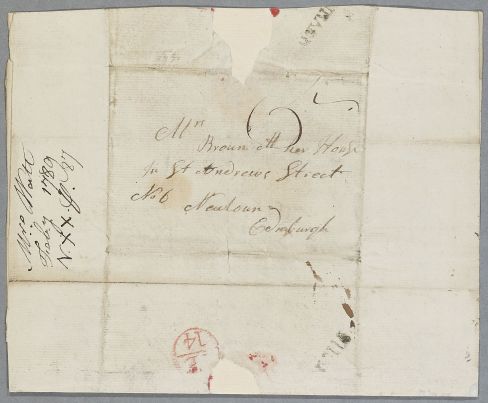 Mrs
Brown att her House
In St Andrews Street
No 6 Newtoun
Edinburgh
Mrs Watt
Feby 1789
14